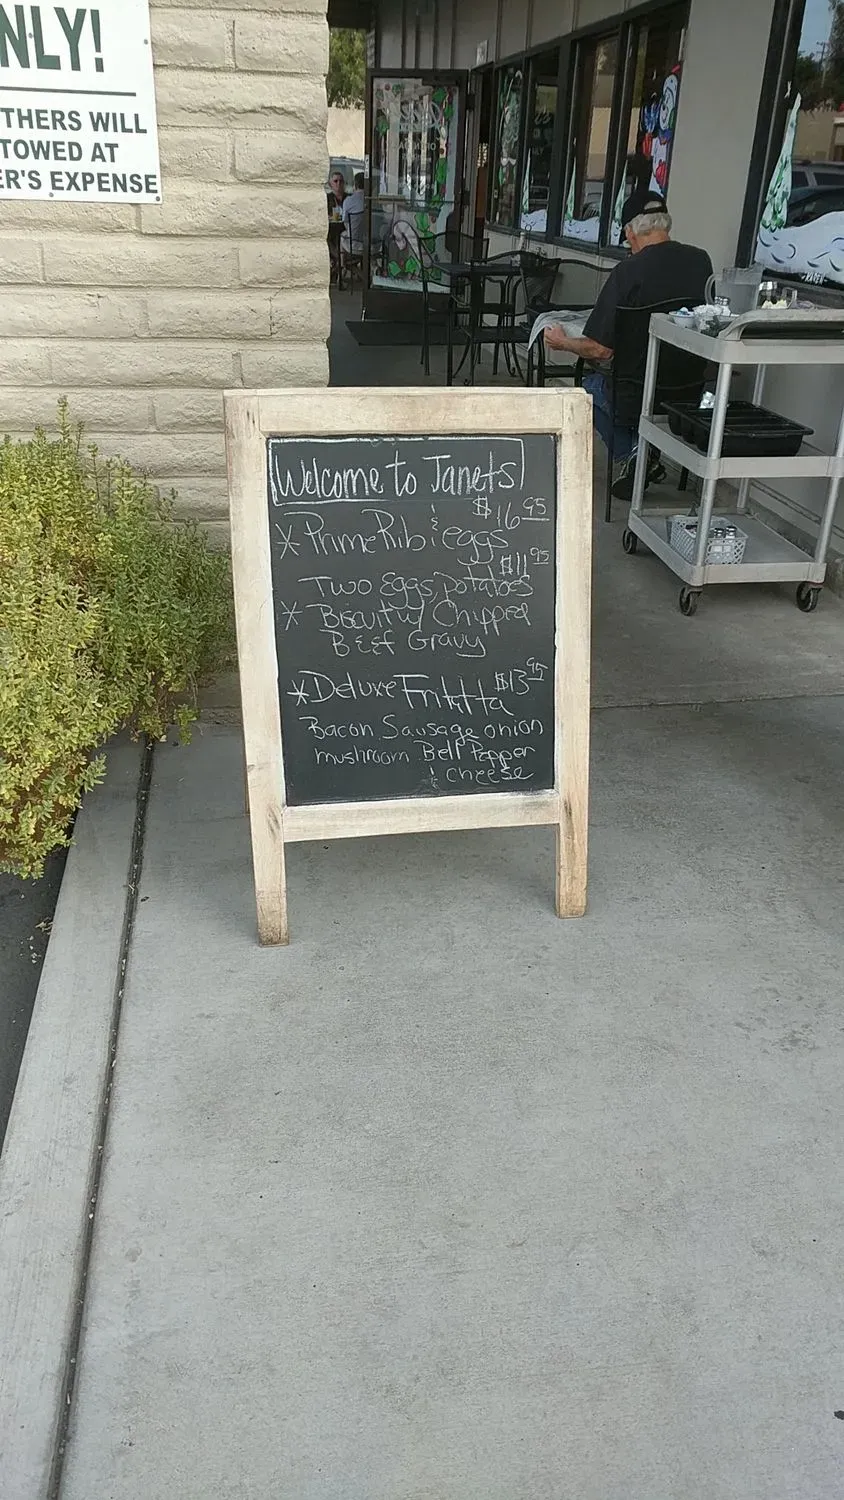 NLY!
THERS WILL
TOWED AT
ER'S EXPENSE
Welcome to Janets
$16 95
* Prime Rib & eggs
$11 95
Two Eggs, Potatoes
* Biscuit w/ Chipped
Beef Gravy
$13 95
* Deluxe Frittatta
Bacon, Sausage, onion
mushroom Bell Pepper
& cheese